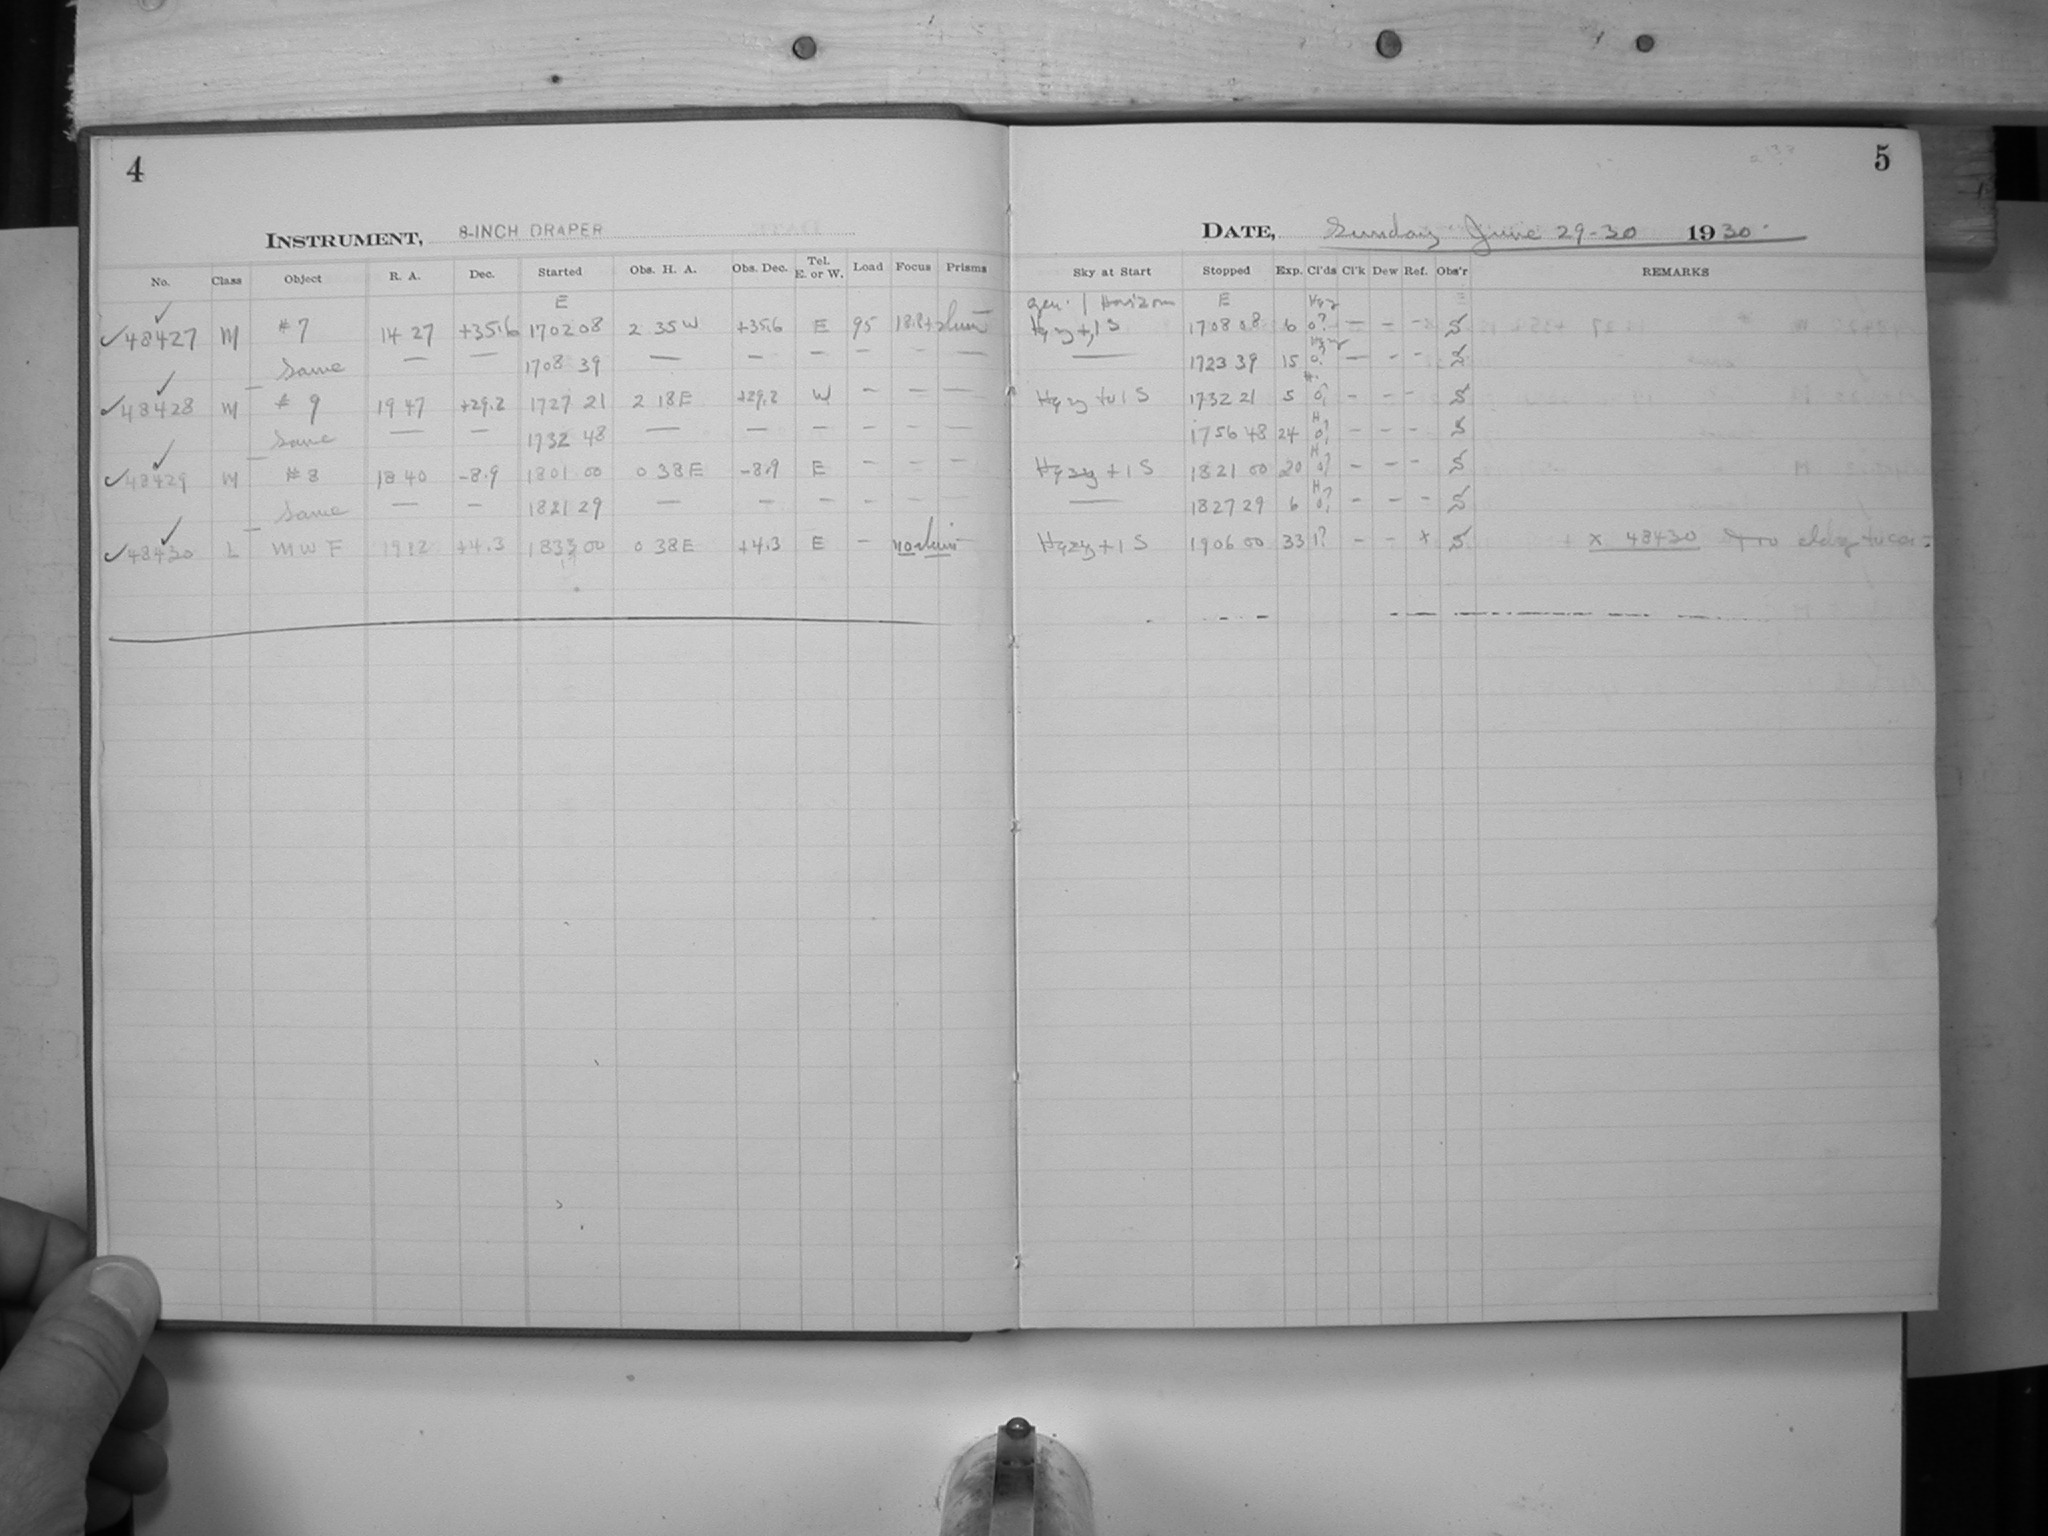 4
INSTRUMENT, 8-INCH DRAPER
No. Class Object R. A. Dec. Started Obs. H. A. Obs. Dec. Tel. E. or W. Load Focus Prisms
E
✓48427 M #7 14 27 +35.6 1702 08 2 35 W +35.6 E 95
Same — — 1708 39 — — — — — —
✓48428 M # 9 19 47 +29.2 1727 21 2 18 E +29.2 W — — —
Same — — 1732 48 — — — — — —
✓48429 M #8 18 40 -8.9 1801 00 0 38 E -8.9 E — — —
Same — — 1821 29 — — — — — —
✓48430 L M W F +4.3 1833 00 0 38 E +4.3 E —
5
DATE, Sunday June 29-30 1930
Sky at Start Stopped Exp. Cl'ds Cl'k Dew Ref. Obs'r REMARKS
gen. | Horizon E
Hazy + 1 S 1708 08 6 0? — — — S
— 1723 39 15 0? — — — S
Hazy to 1 S 1732 21 5 H 0? — — — S
1756 48 24 H 0? — — — S
Hazy + 1 S 1821 00 20 H 0? — — — S
— 1827 29 6 H 0? — — — S
Hazy + 1 S 1906 00 33 1? — — x S x 48430 Too cldy